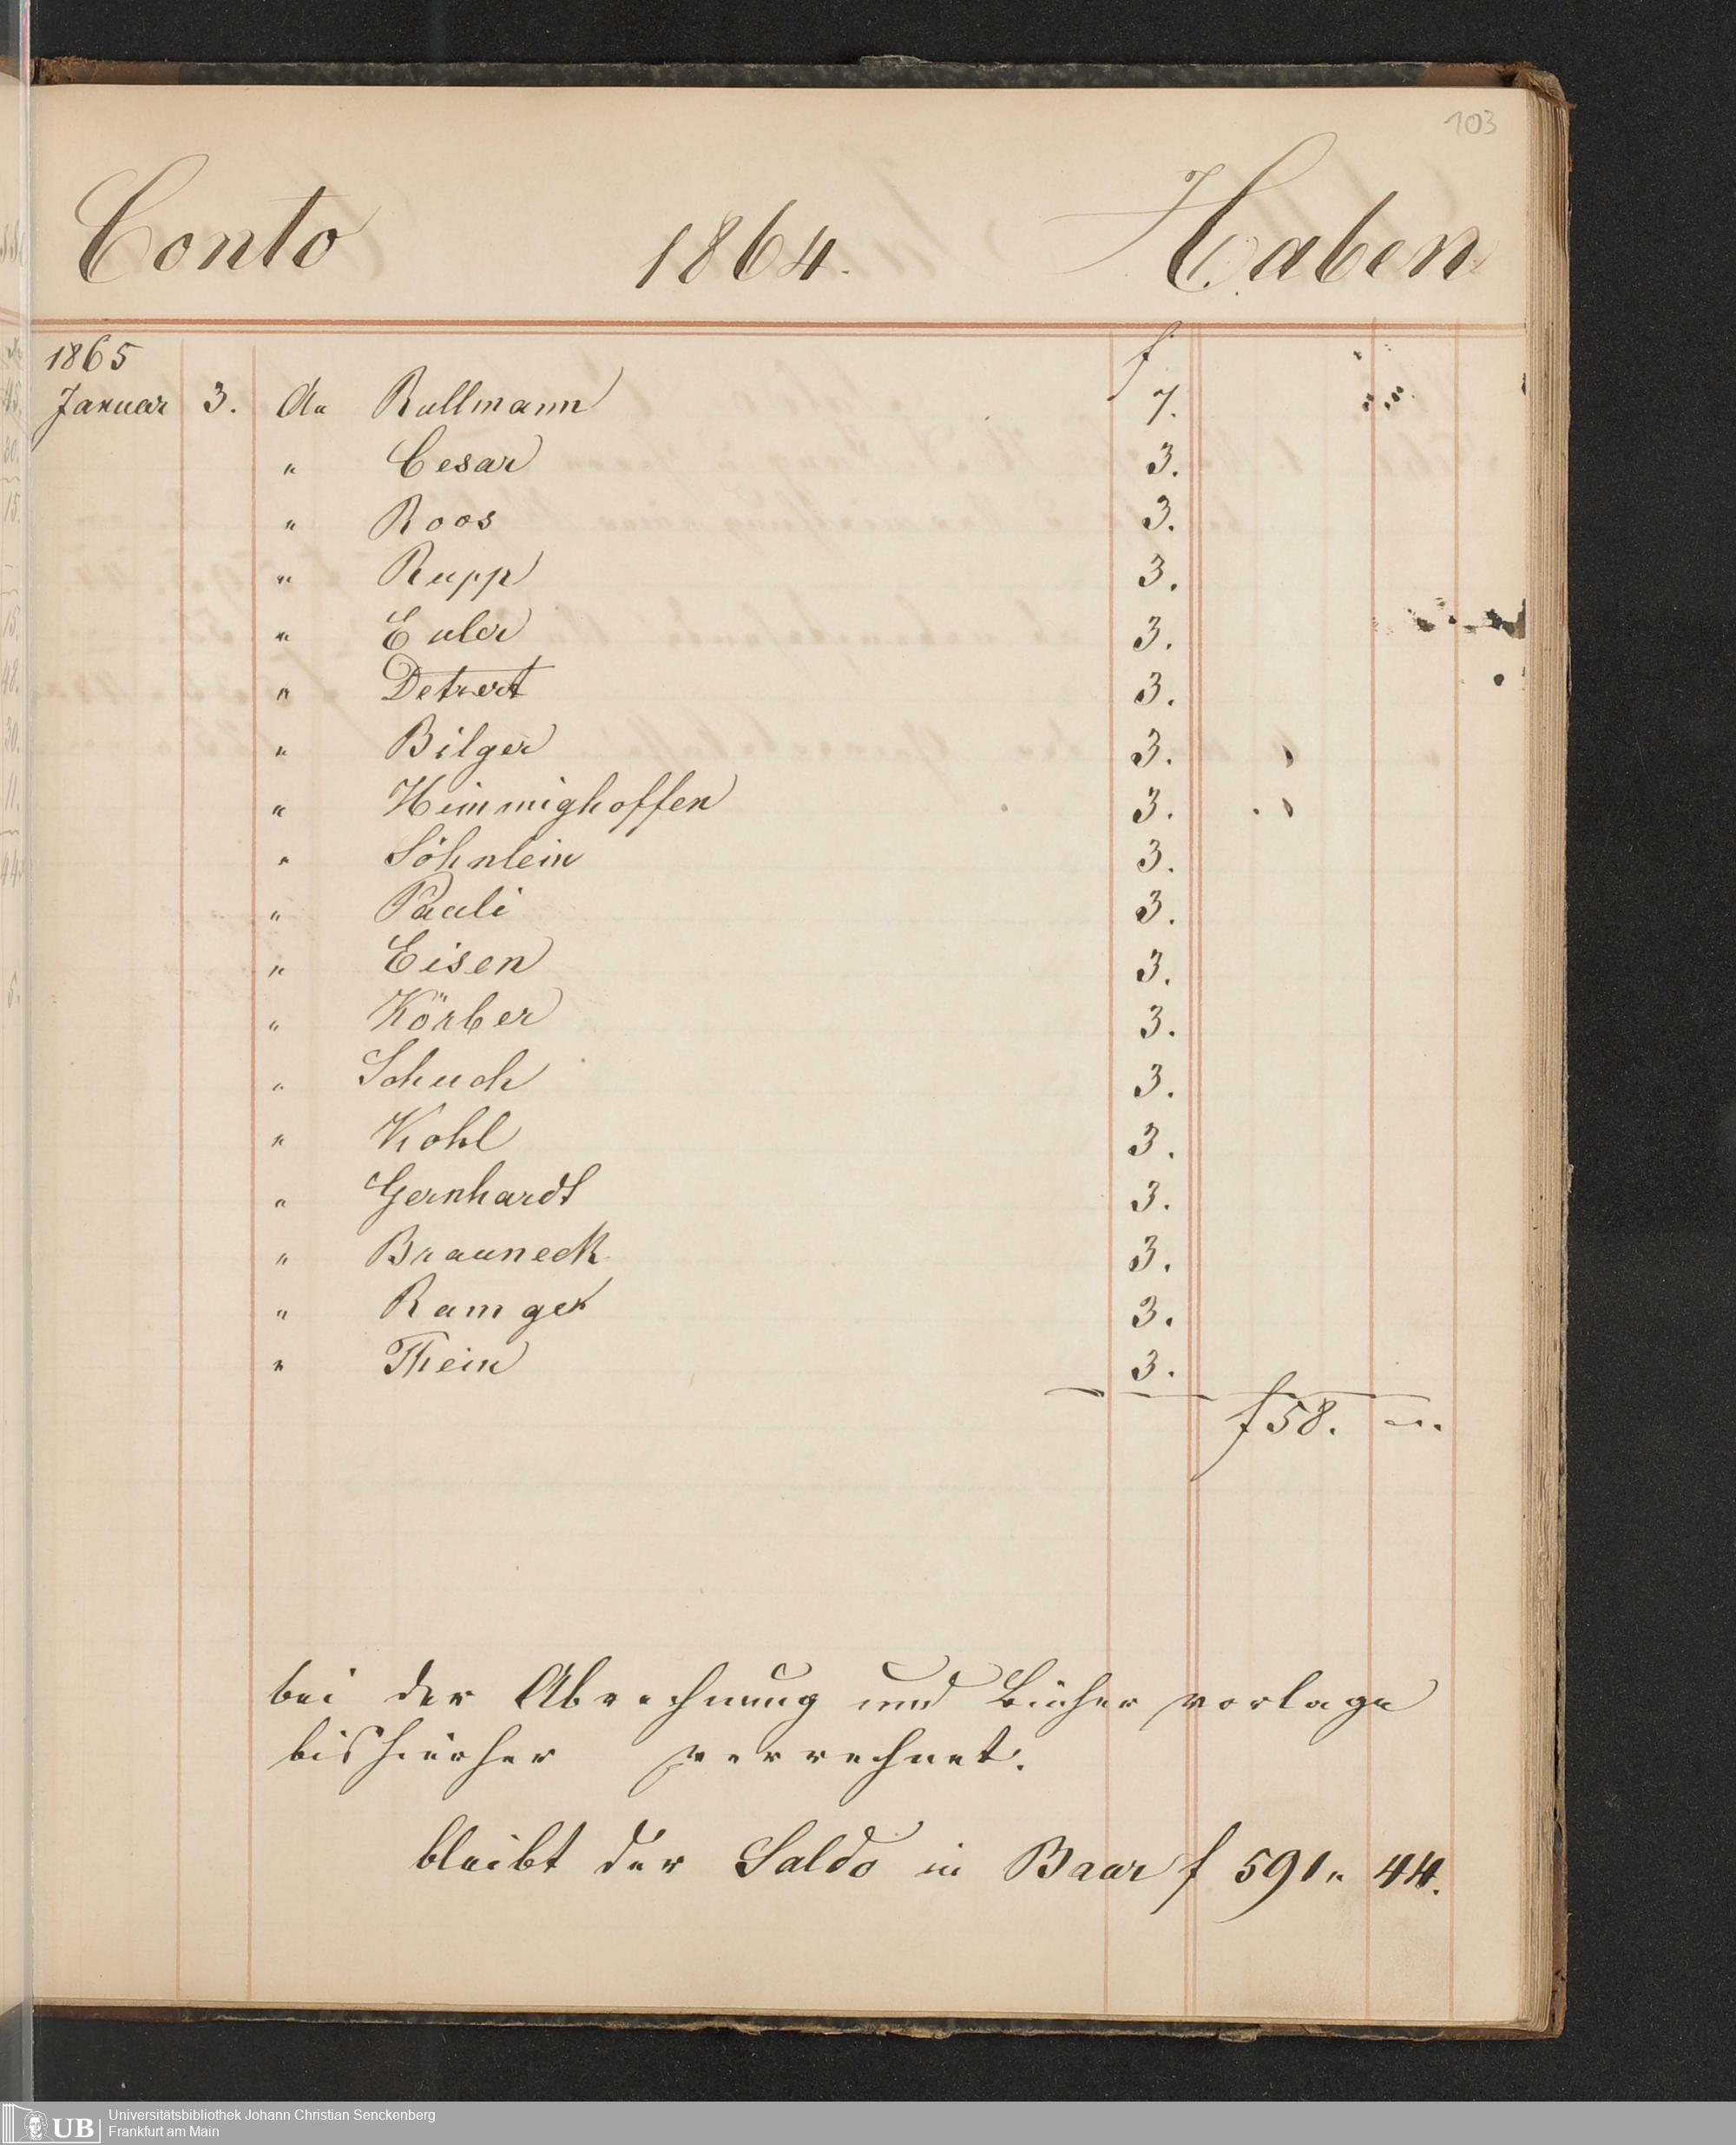 103
Conto 1864. Haben
1865 f
Januar 3. An Rullmann 7.
" Cesar 3.
" Roos 3.
" Rupp 3.
" Euler 3.
" Detrert 3.
" Bilger 3.
" Himmighoffen 3.
" Söhnlein 3.
" Pauli 3.
" Eisen 3.
" Körber 3.
" Schuch 3.
" Kohl 3.
" Gernhardt 3.
" Brauneck 3.
" Ramger 3.
" Thein 3.
f 58. —.
bei der Abrechnung und Bücher vorlage
bis hierher verrechnet.
bleibt der Saldo in Baar f 591 " 44.
UB Universitätsbibliothek Johann Christian Senckenberg
Frankfurt am Main